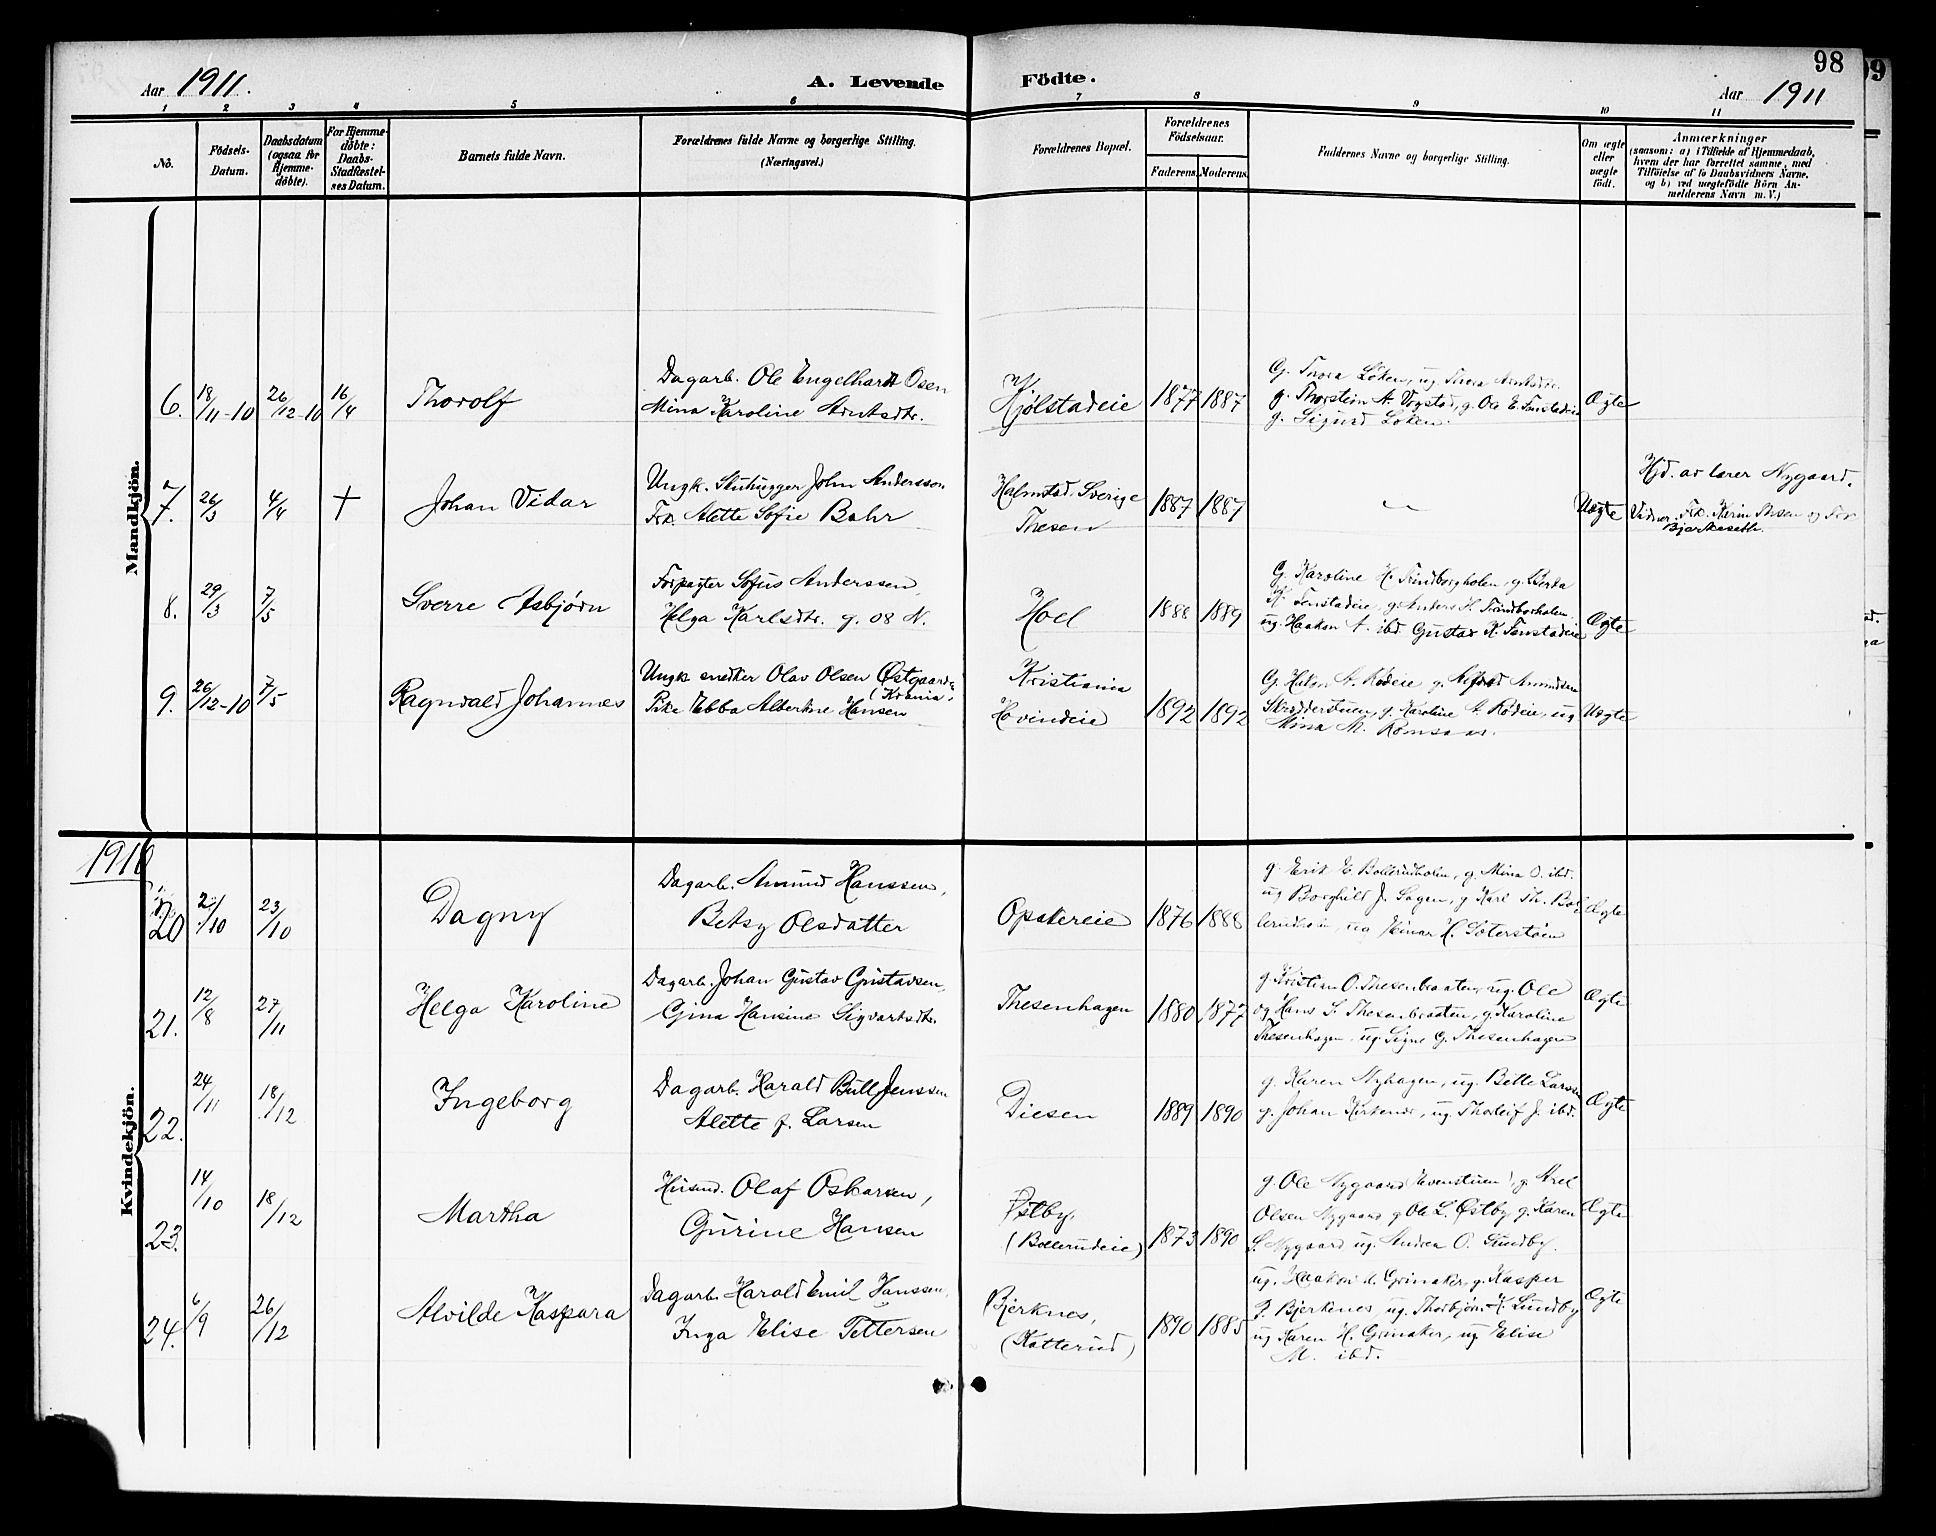 98
Aar 1911.
A. Levende Födte.
Aar 1911
1 2 3 4 5 6 7 8 9 10 11
No.
Födsels-
Datum.
Daabsdatum
(ogsaa for
Hjemme-
döbte).
For Hjemme-
döbte:
Daabs-
Stadfæstel-
ses Datum.
Barnets fulde Navn.
Forældrenes fulde Navne og borgerlige Stilling.
(Næringsvei.)
Forældrenes Bopæl.
Forældrenes
Födselsaar.
Faderens.
Moderens.
Faddernes Navne og borgerlige Stilling.
Om ægte
eller
uægte
födt.
Anmærkninger
(saasom: a) i Tilfælde af Hjemmedaab,
hvem der har forrettet samme, med
Tilföielse af to Daabsvidners Navne,
og b) ved uægtefödte Börn An-
melderens Navn m. V.)
Mandkjön.
6. 18/11-10 26/12-10 16/4
Thorolf
Dagarb. Ole Engelhardt Osen
Mina Karoline Arntsdtr.
Kjølstadeie
1877 1887
G. Thora Løken, ug. Thora
g. Thorstein A. Vogstad, g. Ole E. Fonstadeie
g. Sigurd Løken.
Ægte
7. 26/3 4/4 +
Johan Vidar
Ungk. Stenhugger John Andersson
Frk. Alette Sofie Bahr
Halmstad, Sverige
Thesen
1887 1887
—
Uægte
Hjd. av lærer Nygaard.
Vidner. Frk. Karin Thesen og Frk
Bjerkeseth.
8. 29/3 7/5
Sverre Asbjørn
Forpagter Sofus Anderssen,
Helga Karlsdtr. g. 08 N.
Hoel
1888 1889
G. Karoline H. Trindborgholen, g. Berta
K. Fonstadeie, g. Anders H. Trindborholen
ug. Haakon A. ibd. Gustav K. Fonstadeie
Ægte
9. 26/12-10 7/5
Ragnvald Johannes
Ungk. snedker Olav Olsen Østgaard,
(Krania.
Pike Ebba Albertine Hansen
Kristiania
Hovindeie
1892 1892
G. Hakon A. Rødeie g. Alfred Amundsen
Skrædderstuen, g. Karoline A. Rødeie, ug
Mina M. Romsaas.
Uægte
1910
Kvindekjön.
20 2/10 23/10
Dagny
Dagarb. Amund Hanssen,
Betsy Olsdatter
Opstereie
1876 1888
g. Erik E. Bollerudholm, g. Mina O. ibd.
ug Borghild J. Sagen, g Karl Th. Bol-
lerudholm, ug Einar H. Soterstøen
Ægte
21. 12/8 27/11
Helga Karoline
Dagarb. Johan Gustav Gustavsen,
Gina Hansine Sigvartsdtr.
Thesenhagen
1880 1877
g. Kristian O. Thesenbraaten, ug. Ole
og Hans S. Thesenbraaten, g. Karoline
Thesenhagen, ug. Signe G. Thesenhagen
Ægte
22. 24/11 18/12
Ingeborg
Dagarb. Harald Bull Jenssen
Alette f. Larsen
Diesen
1889 1890
g. Karen Nyhagen, ug. Bitte Larssen
g. Johan Kirkenær, ug. Thorleif J. ibd.
Ægte
23. 14/10 18/12
Martha
Husmd. Olaf Oskarsen,
Gurine Hansen
Østby,
(Bollerudeie)
1873 1890
g. Ole Nygaard (Evenstuen), g. Axel
Olsen Nygaard g Ole L. Østby g. Karen
S. Nygaard ug. Andrea O. Sundby.
Ægte
24. 6/9 26/12
Alvilde Kaspara
Dagarb. Harald Emil Hanssen,
Inga Elise Pettersen
Bjerknes,
(Katterud)
1890 1885
ug. Haakon H. Grinaker, g. Kasper
P. Bjerkenes, ug. Thorbjørn K. Sundby
ug Karen H. Grinaker, ug Elise
M. ibd.
Ægte